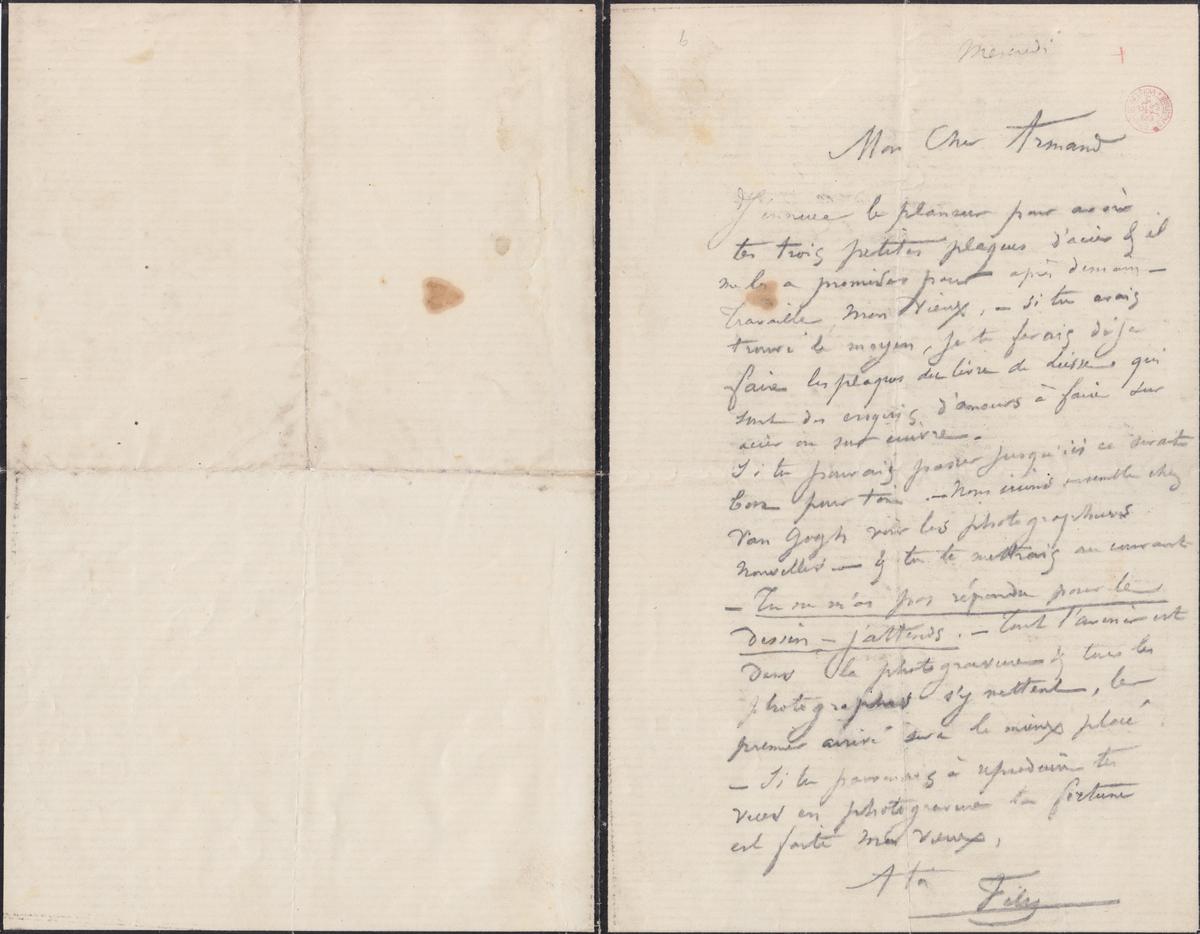 6
Mercredi
Mon Cher Armand
le planeur pour avoir
tes trois petites plaques d'acier & il
me les a promises pour après demain —
Travaille, mon Vieux, — si tu avais
trouvé le moyen, je te ferais déjà
faire les plaques du livre de qui
sont des croquis d'amours à faire sur
acier ou sur cuivre —.
Si tu pouvais passer jusqu'ici ce serait
bon pour toi — Nous irions ensemble chez
Van Gogh voir les photogravures
nouvelles — & tu te mettrais au courant
— Tu ne m'as pas répondu pour le
dessin — j'attends. — Tout l'avenir est
dans la photogravure & tous les
photographes s'y mettent, le
premier arrivé sera le mieux placé
— Si tu parvenais à reproduire tes
vues en photogravure ta fortune
est faite mon vieux,
A toi